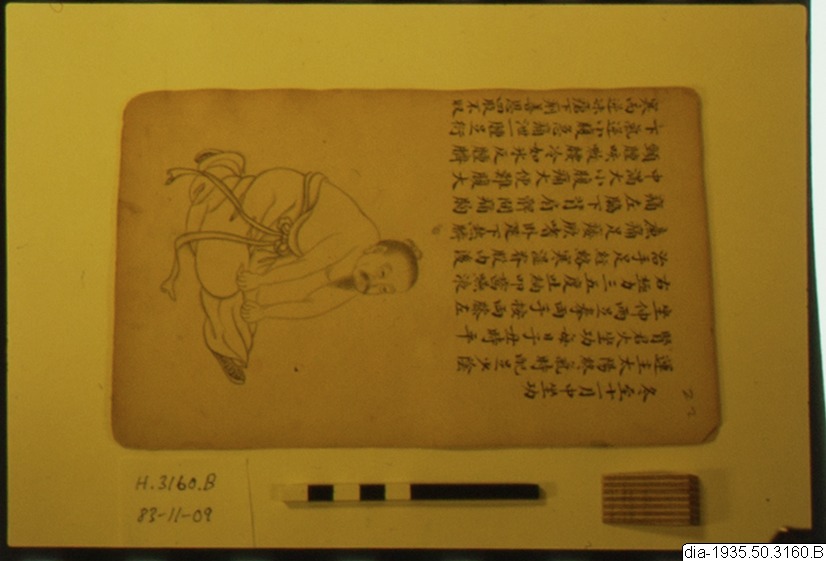 冬至十一月中坐功
運主太陽終氣時配足少陰
腎君火坐功每日子丑時平
坐伸兩足拳兩手按兩膝左
右極力三五度吐納叩齒嚥液
治手足經絡寒濕脊股內後
廉痛足痿厥嗜卧足下熱臍
痛左脇下背肩髀間痛胸
中滿大小腹痛大便難腹大
頸腫咳嗽腰冷如氷反腫臍
下氣逆小腹急痛泄下腫足胻
寒而逆凍瘡下痢善思四肢不收
H.3160.B
83-11-09
dia-1935.50.3160.B